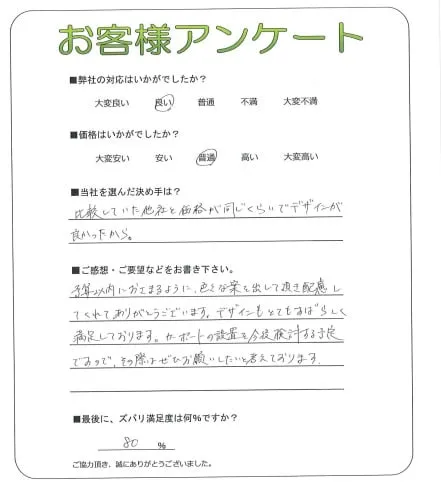 お客様アンケート
■弊社の対応はいかがでしたか?
大変良い 良い 普通 不満 大変不満
■価格はいかがでしたか?
大変安い 安い 普通 高い 大変高い
■当社を選んだ決め手は?
比較していた他社と価格が同じくらいでデザインが
良かったから。
■ご感想・ご要望などをお書き下さい。
予算以内におさまるように、色々な案を出して頂き配慮し
てくれてありがとうございます。デザインもとてもすばらしく
満足しております。カーポートの設置を今後検討する予定
ですので、その際はぜひお願いしたいと考えております。
■最後に、ズバリ満足度は何%ですか?
80 %
ご協力頂き、誠にありがとうございました。